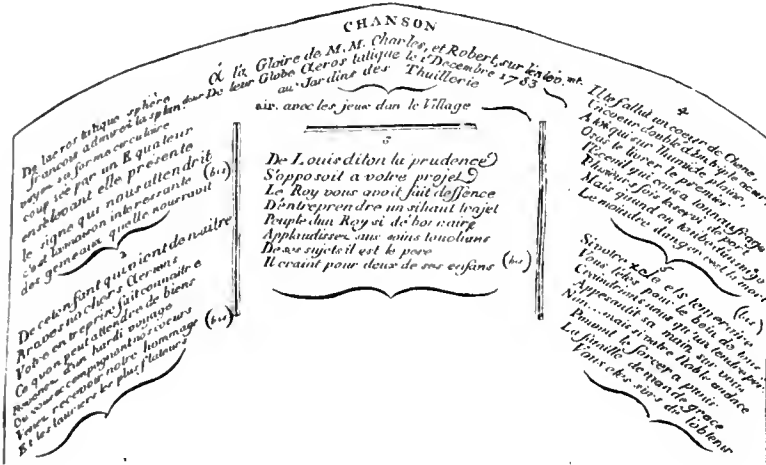 CHANSON
á la Glaire de M.M. Charles, et Robert, sur lenlev. mt.
De leur Globe Aeros tatique le 1er Decembre 1783
au Jardins des Thuillerie
air. avec les jeux dan le Village
De laeros tatique sphère
francois admirez la splendeur
voyez sa forme circulaire
coup ée par un Equateur
en selevant elle présente
le signe qui nous attendrit (bis)
c'est la maison interessante
des gemeaux quelle nourrit
2
De cet enfant qui vient de naitre
Braves nochers Aeriens
Votre entreprise fait connaitre
Ce quon peut attendre de biens
Revenez d'un hardi voyage
Ou vous accompagnant nos coeurs (bis)
Venez recevoir notre hommage
Et les lauriers les plus flateurs
3
De Louis diton la prudence
S'opposoit a votre projet
Le Roy vous avoit fait deffence
D'entreprendre un si haut trajet
Peuple dun Roy si débonnaire
Applaudissez aux soins touchans
De ses sujets il est le pere
Il craint pour deux de ses enfans (bis)
4
Il te fallut un coeur de Chene
Un coeur double d'un triple acier
A toi qui sur l'humide plaine
Osas te livrer le premier
Plusieurs fois
Mais quand on tombe
Le moindre danger cest la mort
(bis)
5
Si votre zele ets temeraire
Vous l'etes pour le bein de tous
Craindrons nous qu'un tendre pere
Appesantit sa main sur vous
Non.... mais si votre Noble audace
Pouvoit le forcer a punir
La famille demande grace
Vous etes surs de l'obtenir